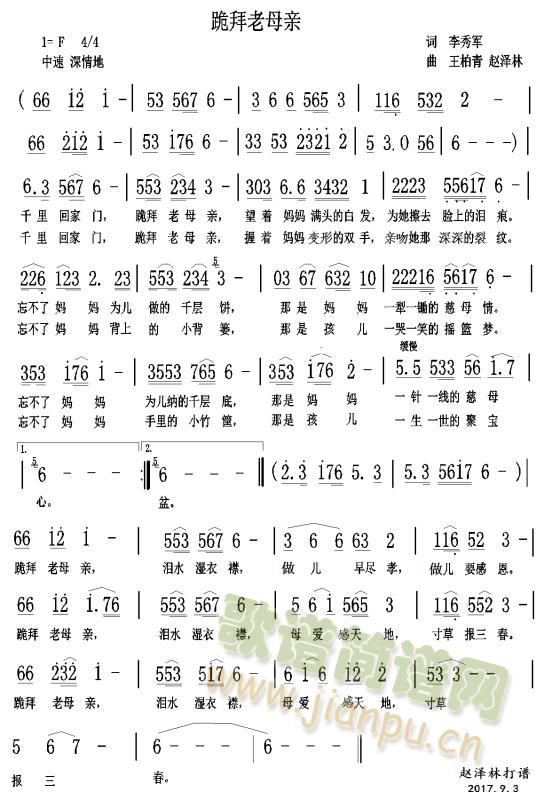 跪拜老母亲
1= F 4/4 词 李秀军
中速 深情地 曲 王柏青 赵泽林
( 66 12 1 - | 53 567 6 - | 3 6 6 565 3 | 116 532 2 -
66 212 1 - | 53 176 6 - | 33 53 2321 2 | 5 3.0 56 | 6 - - -)
6.3 567 6 - | 553 234 3 - | 303 6.6 3432 1 | 2223 55617 6 -
千里 回家 门, 跪拜 老母 亲, 望着 妈妈 满头的白 发, 为她擦去 脸上的泪 痕。
千里 回家 门, 跪拜 老母 亲, 握着 妈妈 变形的双 手, 亲吻她那 深深的裂 纹。
226 123 2. 23 | 5 553 2523 4 3 - | 03 67 632 10 | 22216 5617 6 -
忘不了 妈 妈 为儿 做的 千层 饼, 那是 妈妈 一犁一锄的 慈母 情。
忘不了 妈 妈 背上 的 小背 篓, 那是 孩 儿 一哭一笑的 摇篮 梦。
缓慢
353 176 1 - | 3553 765 6 - | 353 176 2 - | 5.5 533 56 1.7
忘不了 妈 妈 为儿纳的千层 底, 那是 妈 妈 一针 一线的 慈 母
忘不了 妈 妈 手里的 小竹 筐, 那是 孩 儿 一生 一世的 聚 宝
1. 2.
5 6 - - - :| 5 6 - - - || (2.3 176 5. 3 | 5.3 5617 6 -)
心。 盆。
66 12 1 - | 553 567 6 - | 3 6 6 63 2 | 116 52 3 -
跪拜 老母 亲, 泪水 湿衣 襟, 做 儿 早尽 孝, 做儿 要感 恩。
66 12 1.76 | 553 567 6 - | 5 6 1 565 3 | 116 5 2 3 -
跪拜 老母 亲, 泪水 湿衣 襟, 母 爱 感天 地, 寸草 报 三 春。
66 232 2 - | 553 517 6 - | 5 6 1 12 2 - | 53 3 - -
跪拜 老母 亲, 泪水 湿衣 襟, 母 爱 感天 地, 寸草
5 6 7 - | 6 - - - | 6 - - - ||
报 三 春。
赵泽林打谱
2017.9.3
歌谱简谱网
www.jianpu.cn